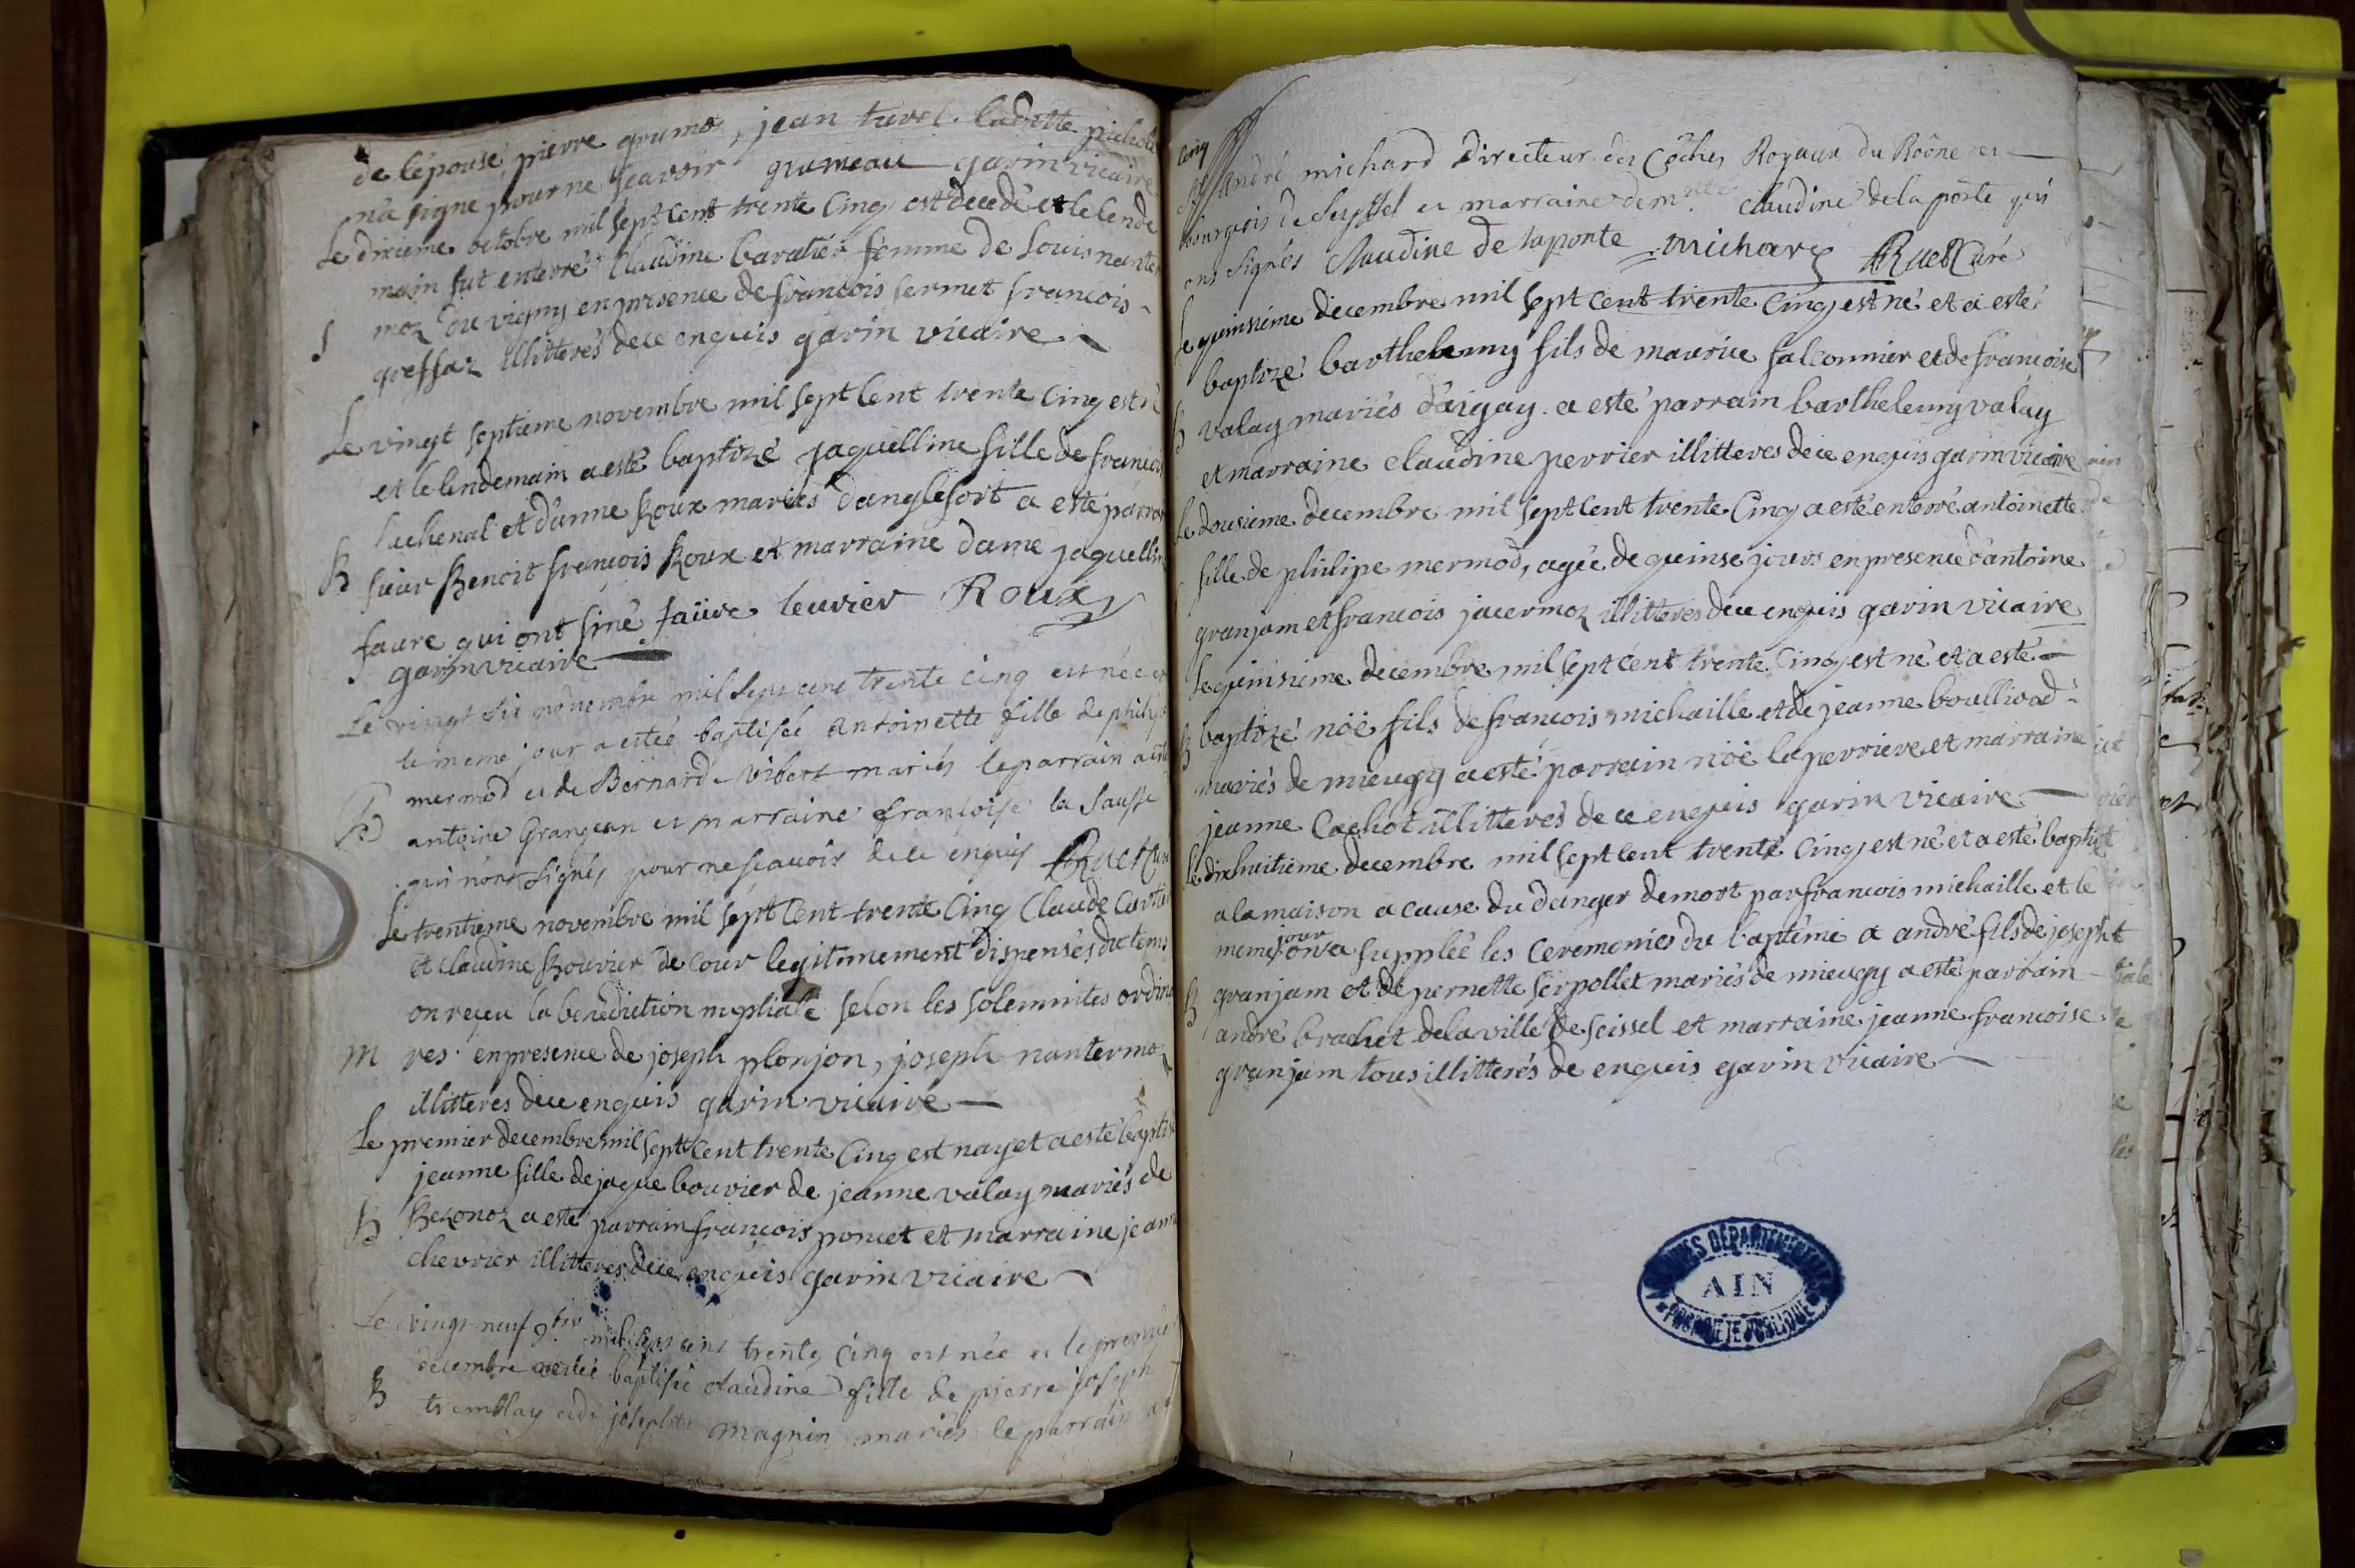 de lépouse, pierre grumos, jean turel. laditte pichole
n'a signe pour ne sçavoir grumeau garin vicaire
Le dixieme octobre mil sept cent trente Cinq est decedé et le lende
main fut enterré Claudine baratier femme de Louis nanter
moz du vigny en presence de françois sermet françois
greffaz illitterés de ce enquis garin vicaire
Le vingt septieme novembre mil sept cent trente Cinq est né
et le lendemain a esté baptizé jaquelline fille de françois
lachenal et d'anne Roux mariés d'anglefort a esté parrai
B sieur Benoit françois Roux et marraine dame jaquellin
faure qui ont siné faüre leuvier Roux
garin vicaire
Le vingt six novembre mil sept cent trente cinq est née et
le meme jour a esteé baptisée antoinette fille de philipe
mermod et de Bernarde vibert mariés le parrain a esté
B antoine Grangean et marraine françoise la sausse
qui n'ont signés pour ne scauoir de ce enquis Ruet Curé
Le trentieme novembre mil sept cent trente Cinq Claude Cartie
et claudine Bouvier de cour legitimement dispensés du tems
on reçeu la benediction nuptiale selon les solemnites ordina
M res en presence de joseph plonjon, joseph nantermoz
illitteres de ce enquis garin vicaire
Le premier decembre mil sept cent trente Cinq est nay et a esté baptisé
jeanne fille de jaque bouvier de jeanne valay mariés de
B Bezonoz a esté parrain françois poncet et marraine jeanne
chevrier illitteres de ce enquis garin vicaire
Le vingt-neuf 9bre mil sept cent trente Cinq est née et le premier
decembre a esteé baptisée claudine fille de pierre joseph
B tremblay et de josephte magnin mariés le parrain a
Sr André michard Directeur des Côches Royaux du Roône et
bourgeois de Seyssel et marraine demlle claudine de la porte qui
ont Signés Claudine de laporte michard Ruet Curé
Le quinsieme decembre mil sept cent trente Cinq est né et a esté
baptizé barthelemy fils de maurice falconnier et de françoise
B valay mariés d'aigay. a esté parrain barthelemy valay
et marraine claudine perrier illitteres de ce enquis garin vicaire
Le dousieme decembre mil sept cent trente Cinq a esté enterré antoinette
fille de philipe mermod, agée de quinse jours en presence d'antoine
granjam et françois jacermoz illitteres de ce enquis garin vicaire
Le quinsieme decembre mil sept cent trente Cinq est né et a esté
B baptizé noë fils de françois michaille et de jeanne boullioad
mariés de mieugy a esté parrain noë la perriere et marraine
jeanne Cachot illitterés de ce enquis garin vicaire
Le dixhuitieme decembre mil sept cent trente Cinq est né et a esté baptizé
a la maison a cause du danger de mort par françois michaille et le
meme jour on a supplée les ceremonies du baptême a andré fils de joseph
B granjam et de pernette serpollet mariés de mieugy a esté parrain
andré brachet de la ville de seissel et marraine jeanne françoise
granjam tous illitterés de enquis garin vicaire
ARCHIVES DÉPARTEMENTALES
AIN
PROPRIÉTÉ PUBLIQUE